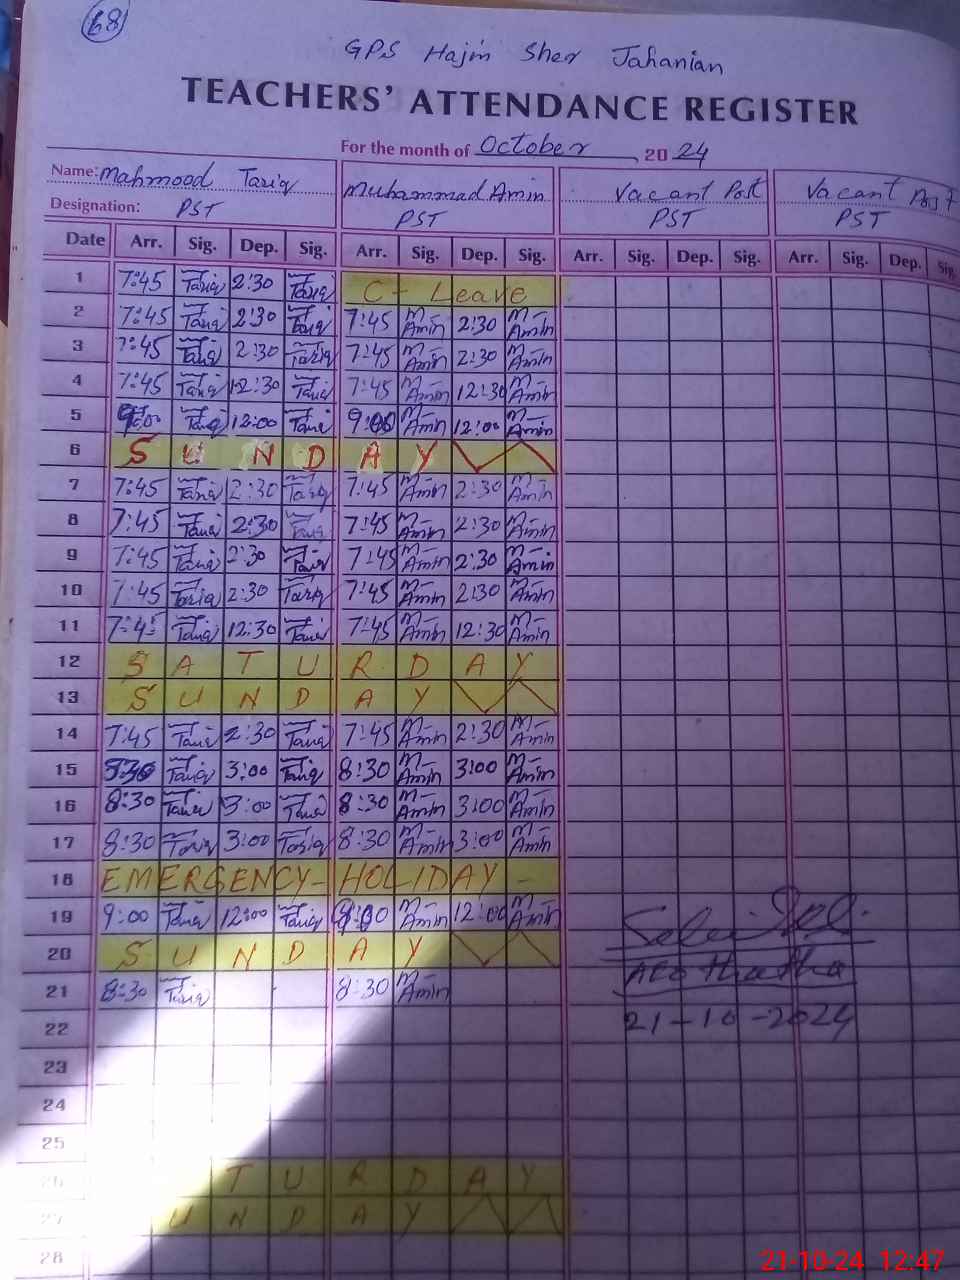 68
GPS Hajin Sher Jahanian
TEACHERS' ATTENDANCE REGISTER
For the month of October 2024
Name: Mahmood Tariq Muhammad Amin Vacant Post Vacant Post
Designation: PST PST PST PST
Date Arr. Sig. Dep. Sig. Arr. Sig. Dep. Sig. Arr. Sig. Dep. Sig. Arr. Sig. Dep. Sig
1 7:45 Tariq 2:30 Tariq C- Leave
2 7:45 Tariq 2:30 Tariq 7:45 M-Amin 2:30 M-Amin
3 7:45 Tariq 2:30 Tariq 7:45 M-Amin 2:30 M-Amin
4 7:45 Tariq 12:30 Tariq 7:45 M-Amin 12:30 M-Amin
5 9:00 Tariq 12:00 Tariq 9:00 M-Amin 12:00 M-Amin
6 SUNDAY
7 7:45 Tariq 2:30 Tariq 7:45 M-Amin 2:30 M-Amin
8 7:45 Tariq 2:30 Tariq 7:45 M-Amin 2:30 M-Amin
9 7:45 Tariq 2:30 Tariq 7:45 M-Amin 2:30 M-Amin
10 7:45 Tariq 2:30 Tariq 7:45 M-Amin 2:30 M-Amin
11 7:45 Tariq 12:30 Tariq 7:45 M-Amin 12:30 M-Amin
12 SATURDAY
13 SUNDAY
14 7:45 Tariq 2:30 Tariq 7:45 M-Amin 2:30 M-Amin
15 8:30 Tariq 3:00 Tariq 8:30 M-Amin 3:00 M-Amin
16 8:30 Tariq 3:00 Tariq 8:30 M-Amin 3:00 M-Amin
17 8:30 Tariq 3:00 Tariq 8:30 M-Amin 3:00 M-Amin
18 EMERGENCY- HOLIDAY -
19 9:00 Tariq 12:00 Tariq 9:00 M-Amin 12:00 M-Amin
20 SUNDAY
21 8:30 Tariq 8:30 M-Amin
AEO Thatha
22
21-10-2024
23
24
25
26 TURDAY
27 UNDAY
28
21-10-24 12:47